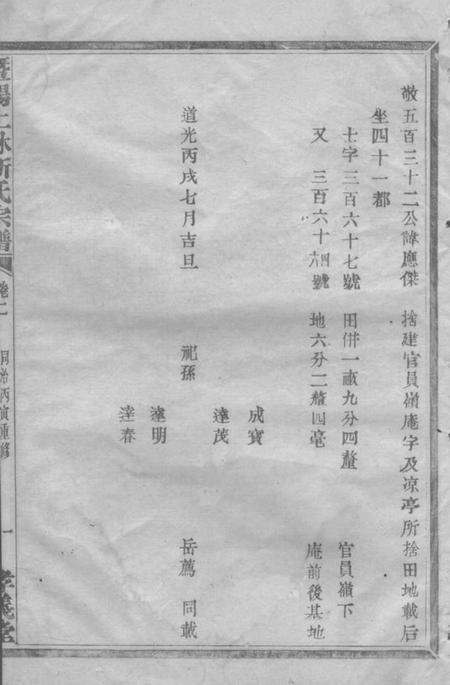 敬五百三十二公諱應傑　捨建官員嶺庵字及凉亭所捨田地載后
坐四十一都
士字三百六十七號　田併一畝九分四釐　官員嶺下
又　三百六十四號　地六分二釐四毫　庵前後基地
成寶
達茂
道光丙戌七月吉旦　祀孫　岳薦　同載
達明
達春
暨陽上林斯氏宗譜　卷二　同治丙寅重修　一　孝義堂